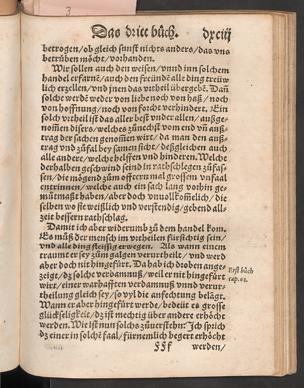 3
Das dritt bůch. dxciij
betrogen/ ob gleich sunst nichts anders/ das vns
betrüben möcht/ vorhanden.
Wir sollen auch den weisen/ vnnd inn solchem
handel erfarnē/ auch den freündē alle ding treüw
lich erzellen/ vnd jnen das vrtheil übergebē. Dañ
solche werdē weder von liebe noch von haß/ noch
von hoffnung/ noch von forcht verhindert. Ein
solch vrtheil ist das aller best vnder allen/ außge-
nom̄en disers/ welches zůnechst vom end vñ auß-
trag der sachen genom̄en wirt/ da man den auß-
trag vnd zůfal bey samen sicht/ deßgleichen auch
alle andere/ welche helffen vnd hinderen. Welche
derhalben geschwind seind in rathschlegen zůfas-
sen/ die mögend zům offtern mal grossem vnfaal
entrinnen/ welche auch ein sach lang vorhin ge-
můtmaßt haben/ aber doch vnuolkom̄elich/ die
selben wo sie weißlich vnd verstendig/ gebend all-
zeit bessern rathschlag.
Damit ich aber widerumb zů dem handel kom.
Es můß der mensch im vrtheilen fürsichtig sein/
vnd alle ding fleissig erwegen. Als wann einem
traumt er sey zům galgen verurtheilt/ vnd werd
aber doch nit hingefürt. Da hab ich droben ange-
zeigt/ dz solche verdamnuß/ weil er nit hingefürt
wirt/ einer warhafften verdamnuß vnnd verur-
theilung gleich sey/ so vyl die anfechtung belāgt.
Wann er aber hingefürt werd/ bedeüt es grosse
glückseligkeit/ dz ist mechtig über andere erhöcht
werden. Wie ist nun solchs zůuerstehn? Ich sprich
dz einer in solchē faal/ fürnemlich begert erhöcht
Erst bůch
cap.
§§f werden/